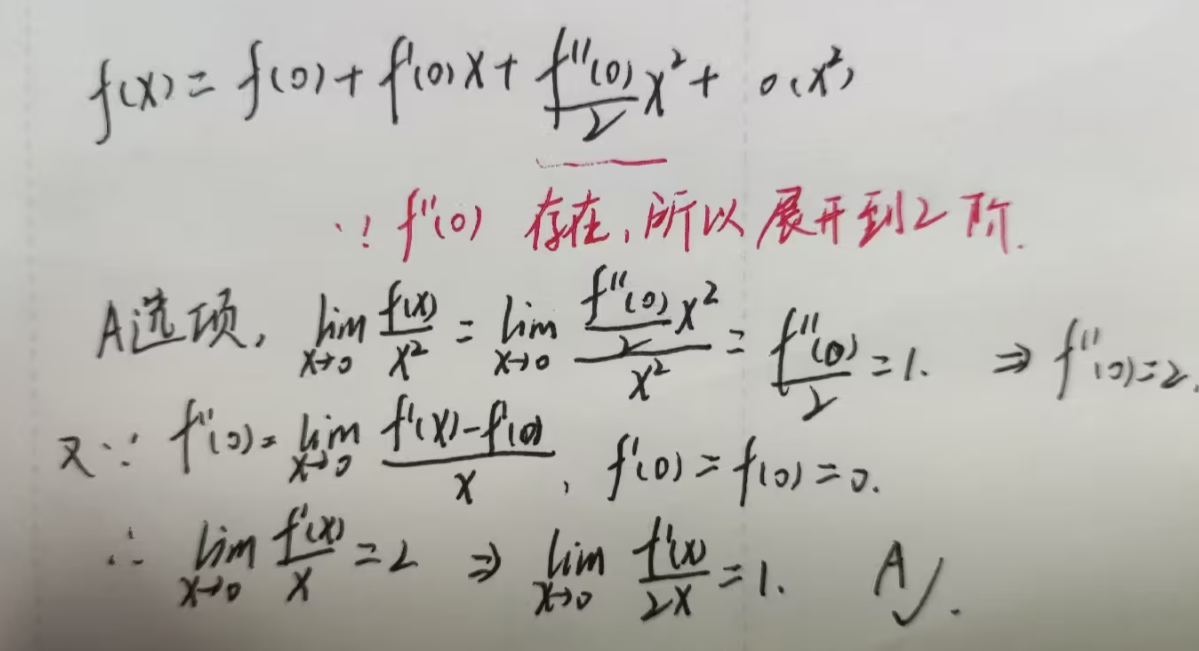 f(x) = f(0) + f'(0)x + \frac{f''(0)}{2}x² + o(x²)
∵ f''(0) 存在,所以展开到2阶.
A选项, \lim_{x→0} \frac{f(x)}{x²} = \lim_{x→0} \frac{\frac{f''(0)}{2}x²}{x²} = \frac{f''(0)}{2} = 1. ⇒ f''(0)=2.
又∵ f''(0) = \lim_{x→0} \frac{f'(x)-f'(0)}{x}, f'(0) = f(0) = 0.
∴ \lim_{x→0} \frac{f'(x)}{x} = 2 ⇒ \lim_{x→0} \frac{f'(x)}{2x} = 1. A✓.